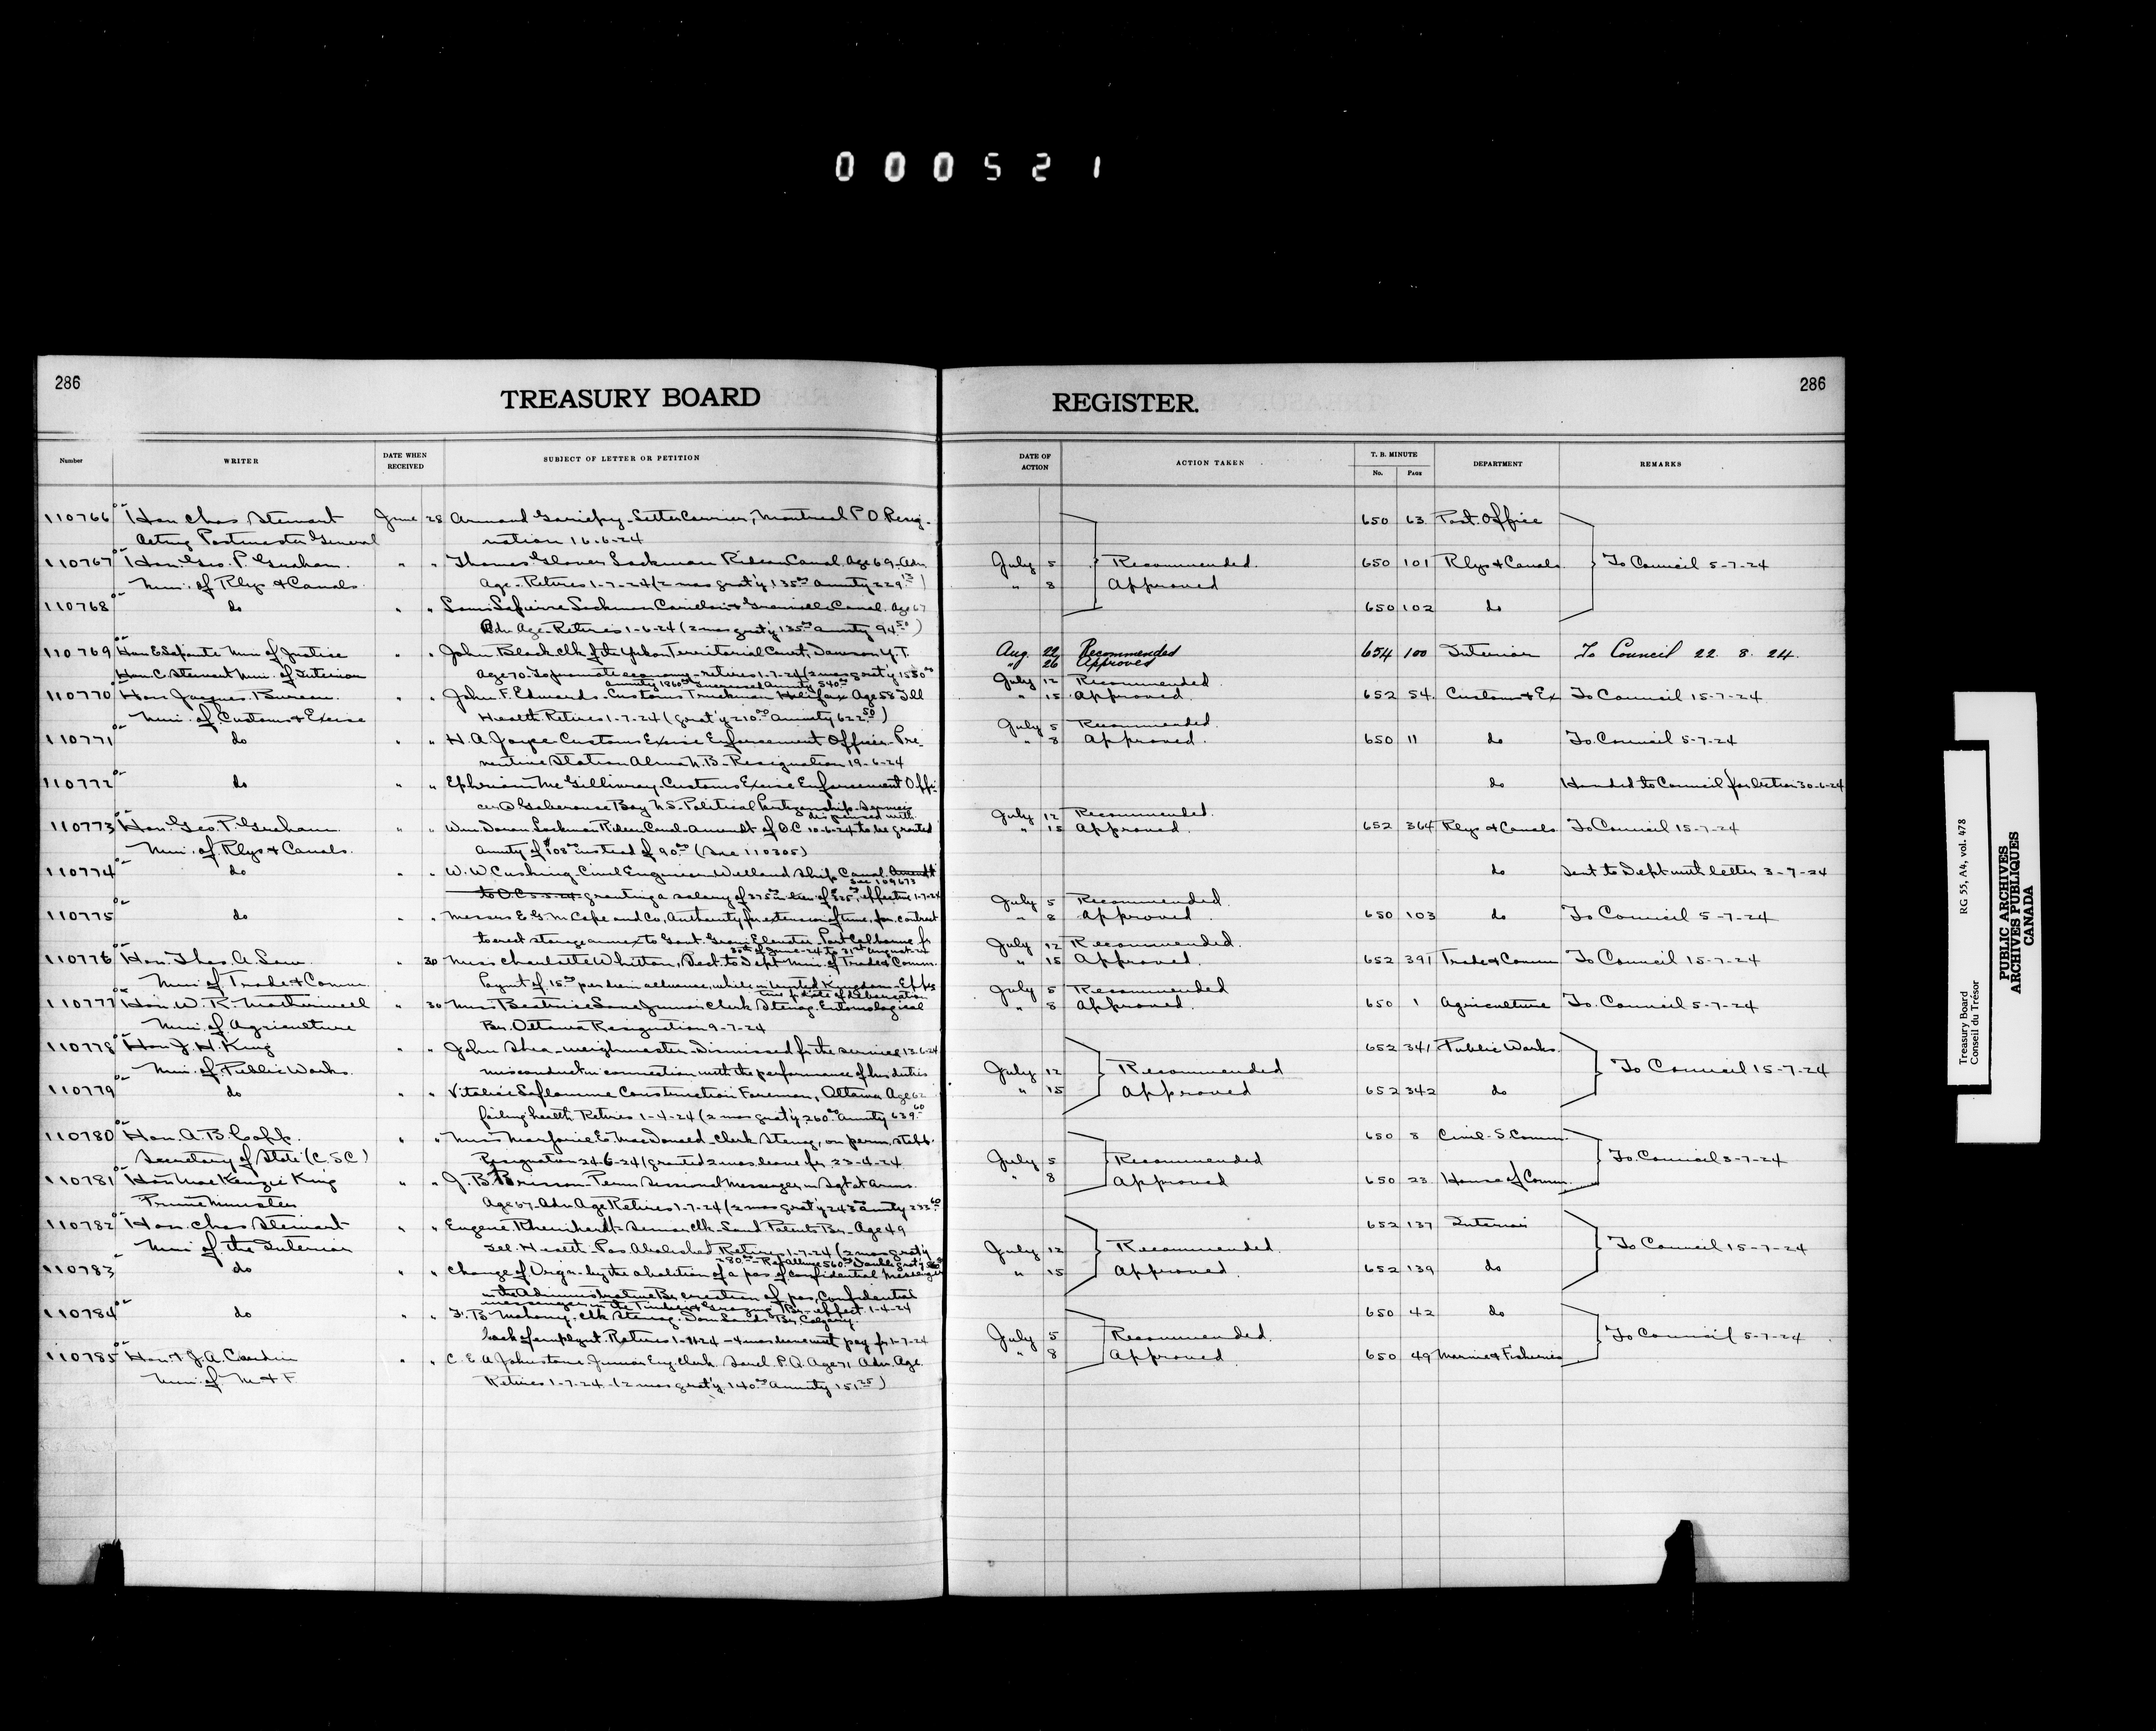 000521
286
TREASURY BOARD
REGISTER.
286
Number
WRITER
DATE WHEN RECEIVED
SUBJECT OF LETTER OR PETITION
DATE OF ACTION
ACTION TAKEN
T. B. MINUTE
No.
PAGE
DEPARTMENT
REMARKS
110766 Hon Chas Stewart June 28 Armand Gariépy - Letter Carrier, Montreal P O Resig- 650 63 Post. Office
Acting Postmaster General nation 16-6-24
110767 Hon. Geo. P. Graham. " " Thomas Glover Lockman Rideau Canal. Age 69. Adv. July 5 Recommended. 650 101 Rlys & Canals To Council 5-7-24
Min. of Rlys & Canals. Age. Retires 1-7-24 (2 mos grat'y 135.00 Annuity 229.) " 8 Approved
110768 do " " Lockman Carillon & Grenville Canal. Age 67 650 102 do
Adv. Age. Retires 1-6-24 (2 mos grat'y 135.00 Annuity 94.50)
110769 Hon E Lapointe Min of Justice " " John Black clk of the Yukon Territorial Court, Dawson Y.T. Aug. 22 Recommended 654 100 Interior To Council 22. 8. 24.
Hon. C. Stewart Min. of Interior Age 70. To promote economy - retires 1-7-24 (2 mos grat'y " 26 Approved
annuity 1860.00 annuity 540.00 July 12 Recommended.
110770 Hon. Jacques. Bureau. " " John F. Edwards. Customs Truckman Halifax Age 58 Ill " 15 Approved. 652 54. Customs & Ex To Council 15-7-24
Min. of Customs & Excise Health. Retires 1-7-24 (grat'y 210.00 annuity 622.50) July 5 Recommended.
110771 do " " H. A. Joyce Customs Excise Enforcement Officer - Pre- " 8 Approved. 650 11 do To. Council 5-7-24
ventive Station Alma N.B. - Resignation 19-6-24
110772 do " " Ephriam McGillivray - Customs Excise Enforcement Offi- do Handed to Council for Action 30-6-24
cer @ Gabarouse Bay N.S. - Political Partizanship. Services
dispensed with. July 12 Recommended.
110773 Hon. Geo. P. Graham " " Wm. Doran Lockman Rideau Canal. Amendt of O.C. 10-6-24 to be granted " 15 Approved. 652 364 Rlys & Canals To Council 15-7-24
Min. of. Rlys & Canals. Annuity of $108.00 instead of 90.00 (See 110305)
110774 do " " W. W. Cushing. Civil Engineer Welland Ship Canal. Amendt do Sent to Dept with letter 3-7-24
See 109673
to O.C. 5-5-24 granting a salary of 375.00 in lieu of $325.00, effective 1-7-24 July 5 Recommended.
110775 do " " Messrs E. G. M Cape and Co, Authority for extension of time, for contract " 8 Approved 650 103 do To Council 5-7-24
to erect storage annex to Govt. Grain Elevator. Port Colborne fr July 12 Recommended.
30th of June -24 to 31st August-24
110776 Hon. Thos. A. Low " 30 Miss Charlotte Whitton, Sect. to Dept Min. of Trade & Comm. " 15 Approved. 652 391 Trade & Comm To Council 15-7-24
Min of Trade & Comm. Paymt of 15.00 per diem allowance, while in United Kingdom - Effec July 5 Recommended
tive fr date of debarcation
110777 Hon. W. R. Motherwell " 30 Miss Beatrice Lane Junior Clerk Stenog. Entomological " 8 Approved. 650 1 Agriculture To. Council 5-7-24
Min. of Agriculture Br. Ottawa Resignation 9-7-24
110778 Hon J. H. King " " John Shea - weighmaster. Dismissed fr the service 12-6-24 652 341 Public Works.
Min. of Public Works. misconduct in connection with the performance of his duties July 12 Recommended To Council 15-7-24
110779 do " " Laflamme Construction Foreman, Ottawa Age 62 " 15 Approved 652 342 do
failing health Retires 1-4-24 (2 mos grat'y 260.00 Annuity 639.60
110780 Hon. A. B. Copp. " " Miss Marjorie E. MacDonald - Clerk Stenog, on perm. staff. 650 8 Civil - S. Comm.
Secretary of State (C.S.C) Resignation 24-6-24 (granted 2 mos leave fr 23-4-24 July 5 Recommended To. Council 5-7-24
110781 Hon MacKenzie King " " J. B. Brisson. Perm Sessional Messenger in Sgt at Arms. " 8 Approved 650 23 House of Comm.
Prime Minister Age 67. Adv. Age Retires 1-7-24 (2 mos grat'y 243.00 annuity
110782 Hon. Chas Stewart " " Eugene Rheinhardt - Senior clk. Land Patents Br. Age 49 652 137 Interior
Min of. the Interior Ill. Health. Pos Abolished Retires 1-7-24 (2 mos grat'y July 12 Recommended. To Council 15-7-24
110783 do " " Change of Orgn. by the abolition of a pos of confidential Messenger " 15 Approved. 652 139 do
in the Administrative Br. creation of pos, Confidential
messenger in the Timber & Grazing Br. - effect. 1-4-24
110784 do " " F. B. Mahony. clk Stenog. Dom Lands Br. Calgary. 650 42 do
lack of employmt. Retires - 4 mos leave with pay fr 1-7-24 July 5 Recommended. To Council 5-7-24
110785 Hon. P. J. A. Cardin " " C. E. A Johnstone Junior Eng. Clerk Sorel. P.Q. Age 71 Adv. Age. " 8 Approved. 650 49 Marine & Fisheries
Min. of. M & F. Retires 1-7-24 - (2 mos grat'y 140.00 Annuity 151.25)
Treasury Board
Conseil du Trésor
RG 55, A4, vol. 478
PUBLIC ARCHIVES
ARCHIVES PUBLIQUES
CANADA